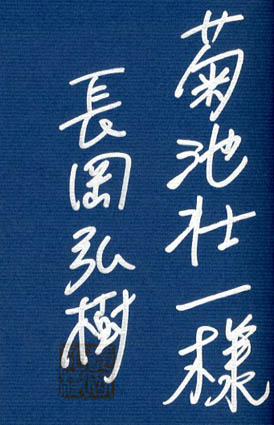 菊池壮一様
長岡弘樹